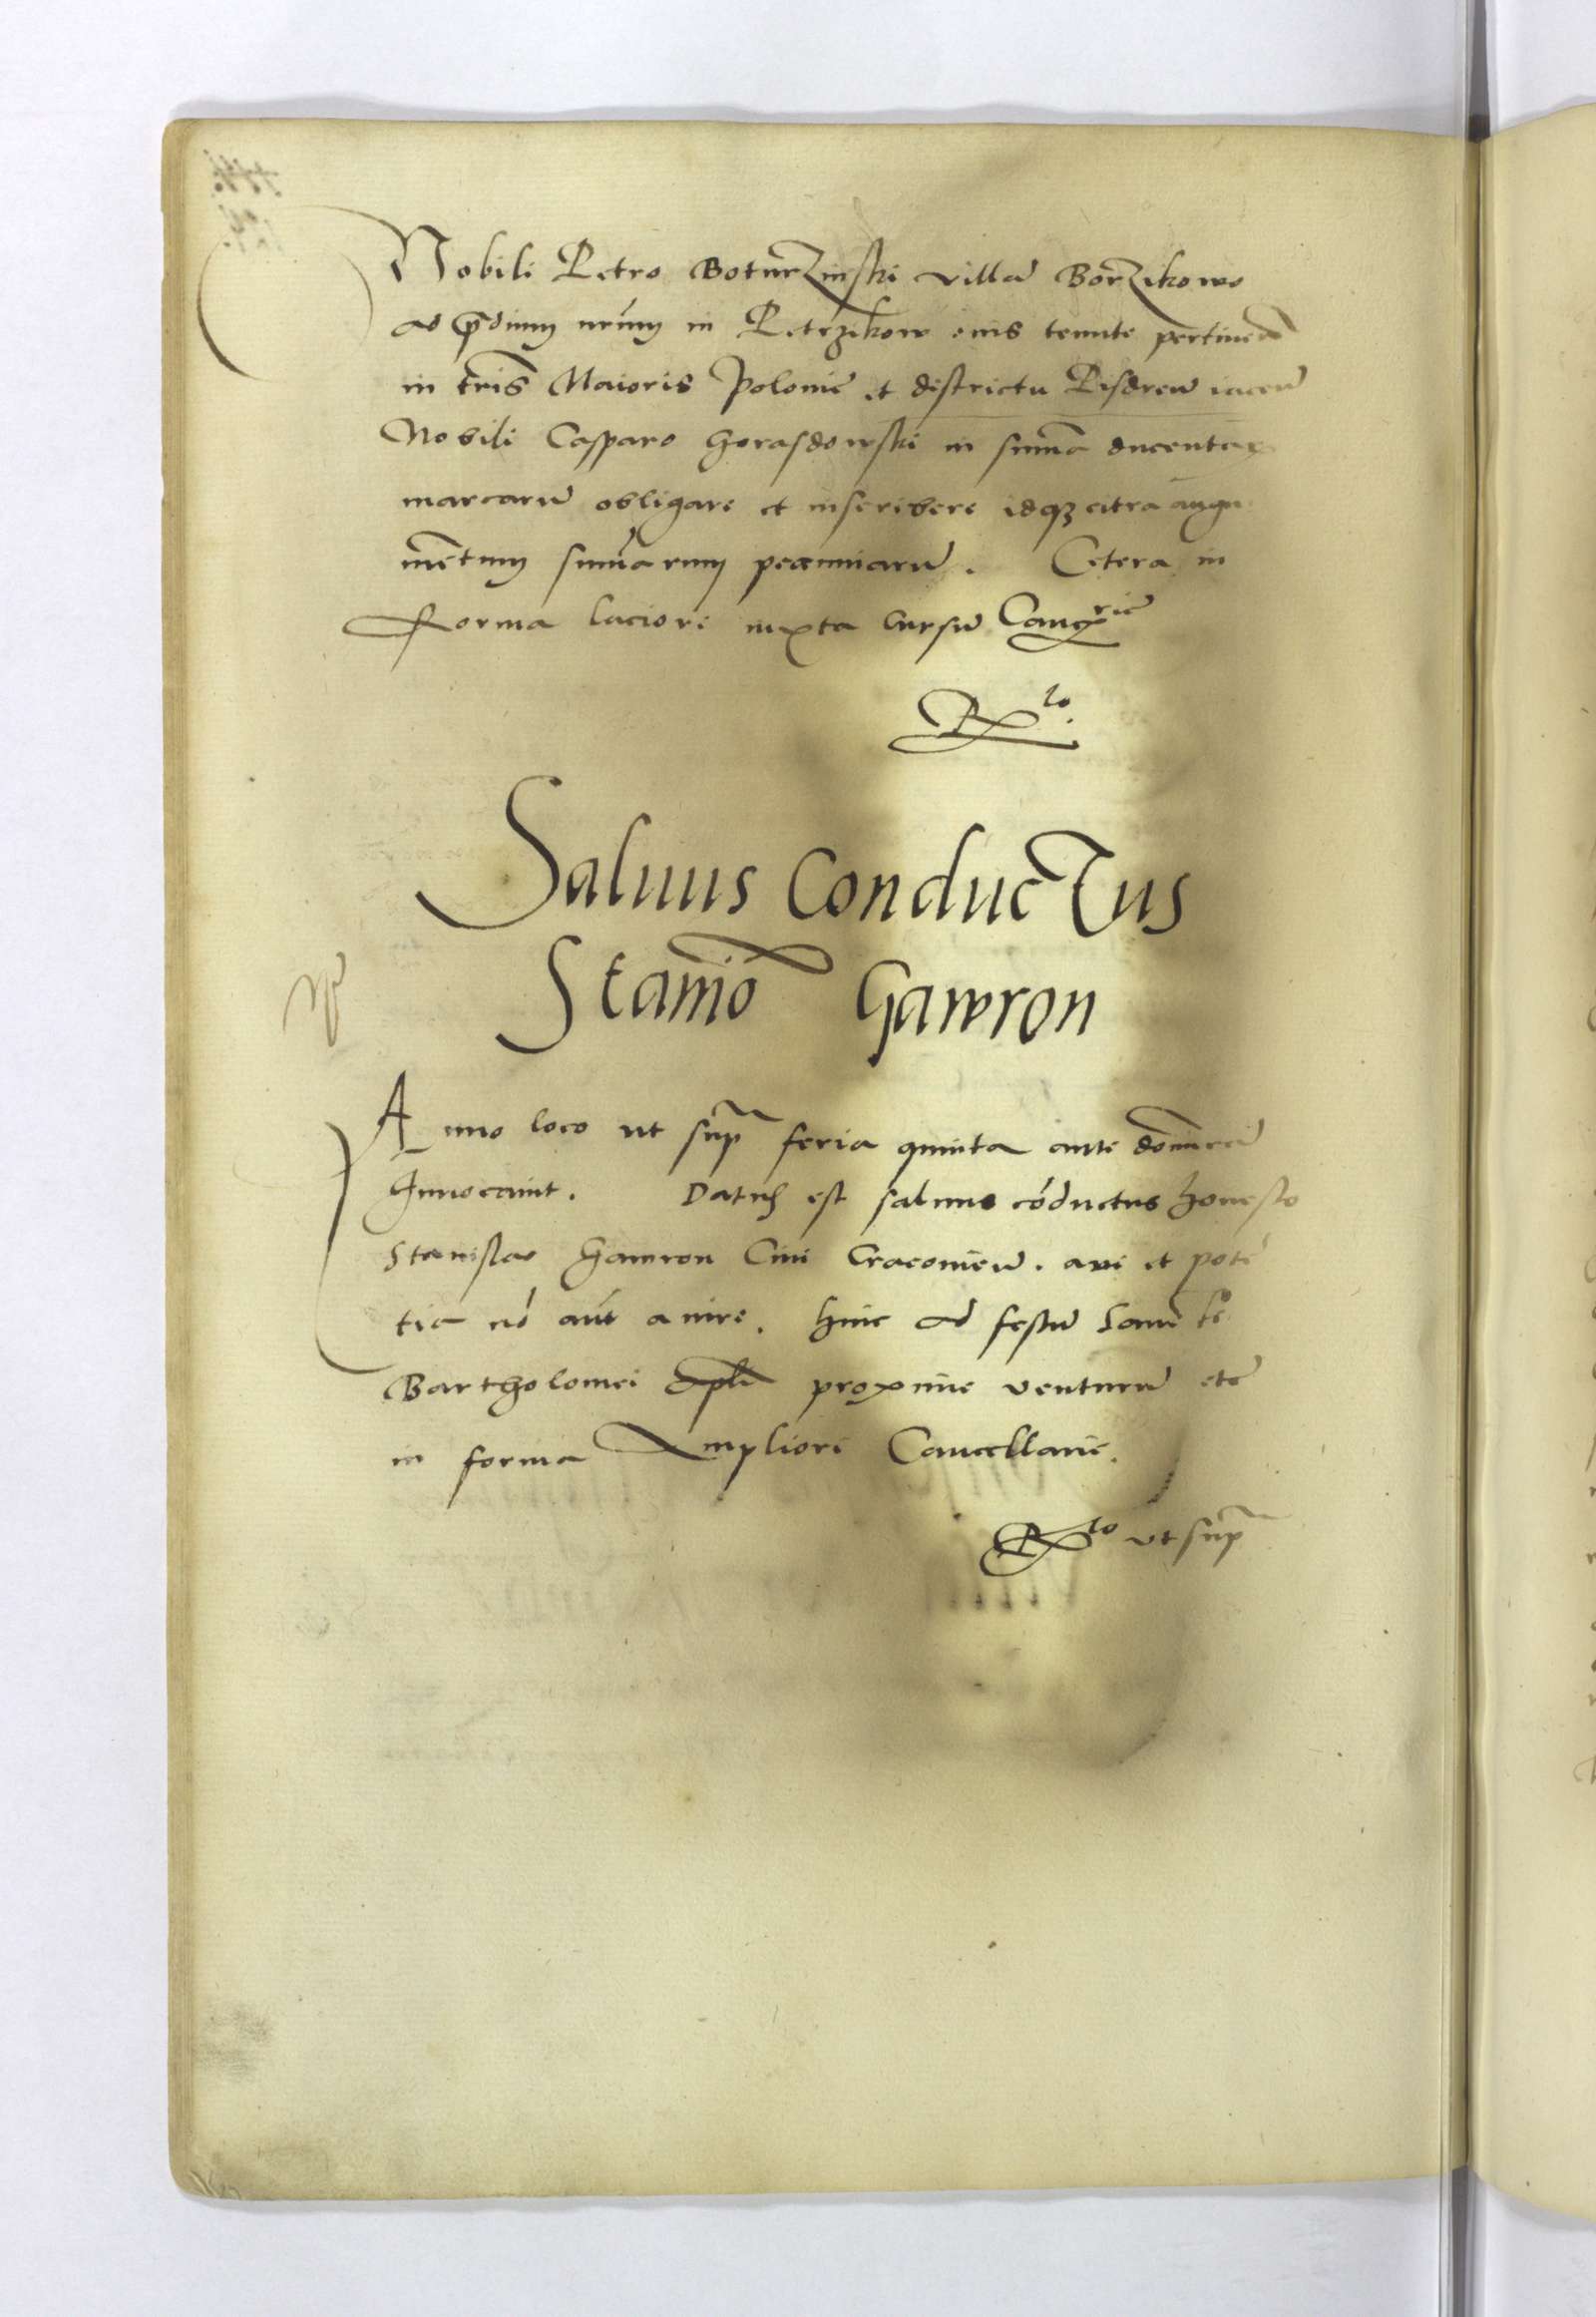 Nobili Petro Boturzinski villā Borzikowo
ad p̄diuȝ nr̄uȝ in Petrzikow eius tenute pertineñ
in t̄ris Maioris Polonie et districtu Pisdreñ iaceñ
Nobili Casparo Gorasdowski in sum̄a ducentaꝝ
marcarū obligare et inscribere idqȝ citra augu
mētuȝ sum̄aruȝ pecuniarū. Cetera in
Forma laciori iuxta cursū Canc̄rie
Rto.
Saluus Conductus
Stanı̄o Gawron
Anno loco ut sup̄ feria quinta ante dom̄icā
Inuocauit. Datus est saluus cōductus honesto
Stanislao Gawron Ciui Cracovieñ. a vi et potē
tia nō aūt a iure. hinc ad festū Sancti
Bartholomei proxime venturū etc̄
in forma Ampliori Cancellarie.
Rto ut sup̄